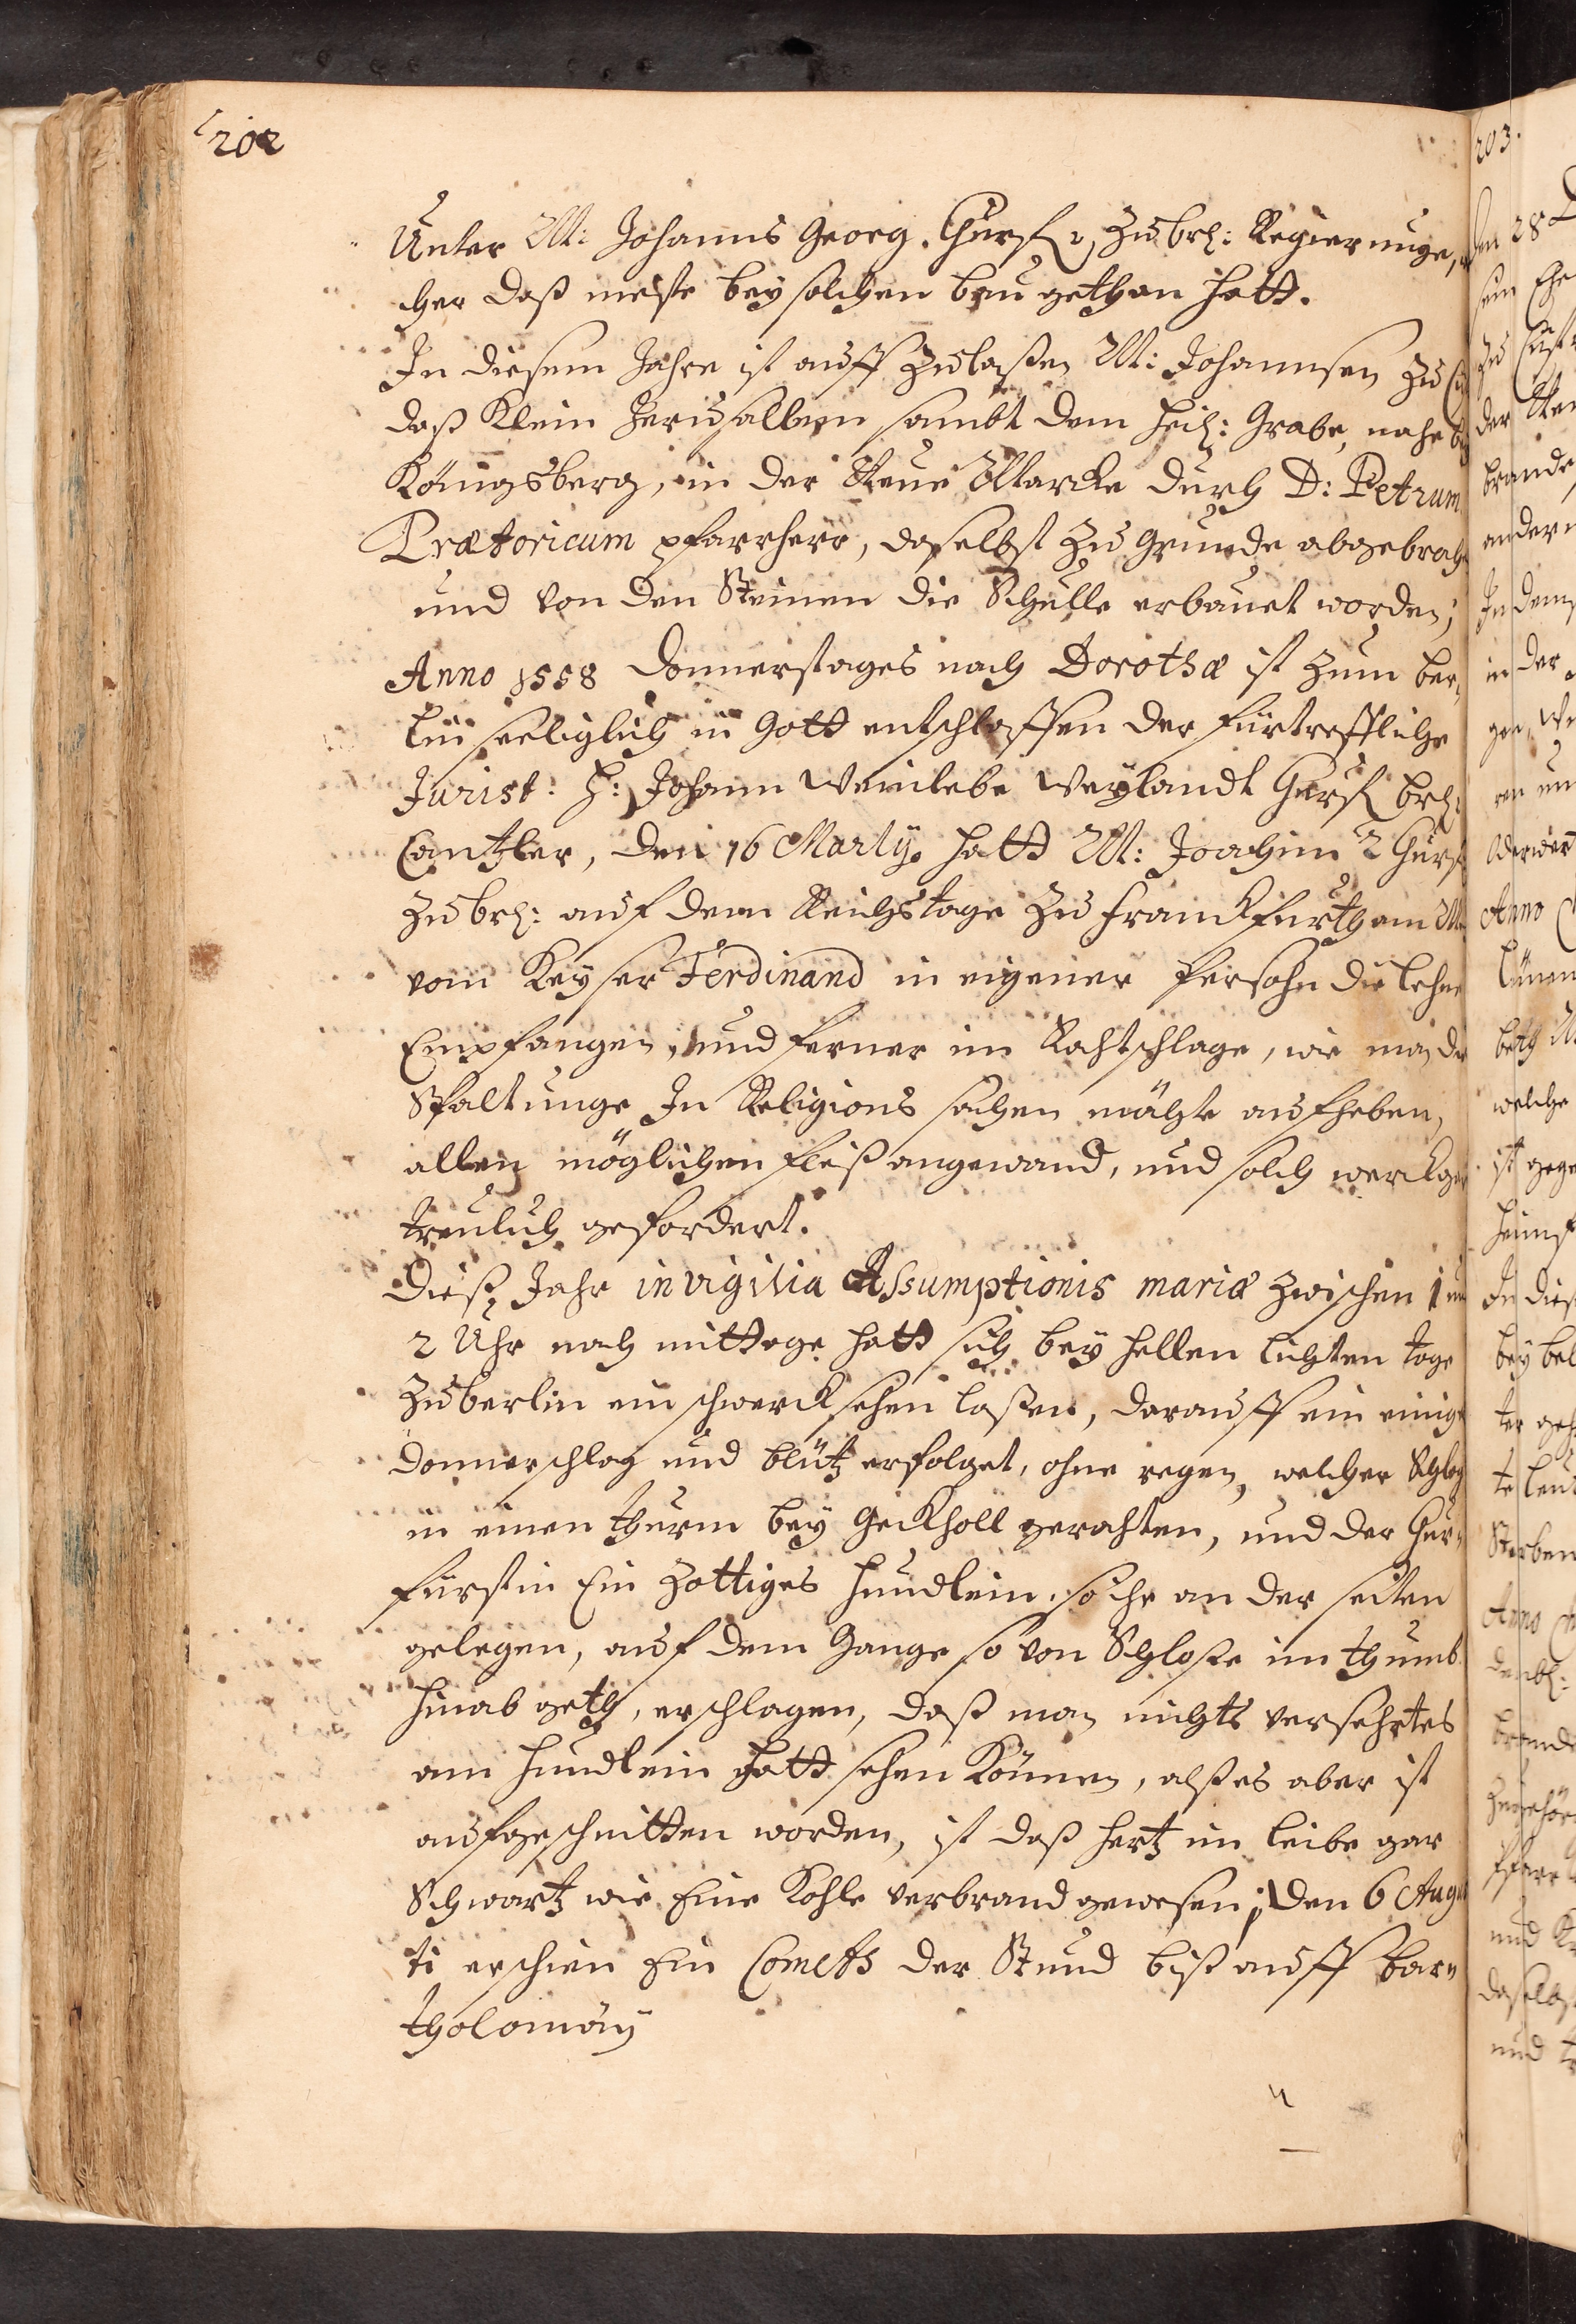 202
Unter M: Johanns Georg. Churf: zu brl: Regierunge,
cher daß meiste bey solchen bau gethan hatt.
In diesem Jahre ist auff zulaßen M: Johannsen zu
daß Klein Jerusallem sambt dem heil: Grabe, nahe
Königsberg, in der Neue Marcke durch D: Petrum
Prætoricum pfarrherr, daselbst zu grunde abgebroch
und von den Steinen die Schulle erbauet worden;
Anno 1558 Donnerstages nach Dorothæ ist zum ber„
lin seeliglich in Gott entschlaffen der fürtreffliche
Jurist: H: Johann Weinlebe Weylandt Churf brl:
Cantzler, den 16 Martij. hatt M: Joachim 2 Churf
zu brl: auf dem Reichstage zu franckfurth am M
vom Keyser Ferdinand in eigener Persohn die lehne
Empfangen, und ferner im Rahtschlage, wie man die
Spaltunge In Religions sachen möchte aufheben,
allen möglichen fleiß angewand, und solch werck gar
treulich gefordert.
Dieß Jahr in vigilia Assumptionis mariæ zwischen 1 un
2 Uhr nach mittage hatt sich bey hellen lichten tage
zu berlin ein schwerck sehen laßen, darauff ein einige
Donnerschlag und blütz erfolget, ohne regen, welcher Schlag
in einen thurm bey Geckholl gerahten, und der Chur„
fürstin Ein zottiges hundlein so ihr an der seiten
gelegen, auf dem Gange so von Schloße im thumb
hinab geth, erschlagen, daß man nichts versehrtes
am hundlein hatt sehen können, alß es aber ist
aufgeschnitten worden, ist daß hertz im leibe gar
Schwartz wie Eine Kohle verbrand gewesen; den 6 Augu
ti erschien Ein Cometh der Stund biß auff bar„
tholomäy
203.